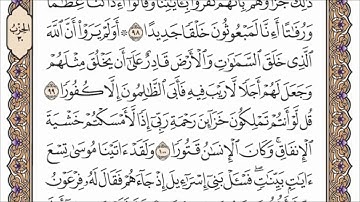 ذَٰلِكَ جَزَاؤُهُم بِأَنَّهُمْ كَفَرُوا۟ بِـَٔايَٰتِنَا وَقَالُوٓا۟ أَءِذَا كُنَّا عِظَٰمًا
وَرُفَٰتًا أَءِنَّا لَمَبْعُوثُونَ خَلْقًا جَدِيدًا ٩٨ ۞ أَوَلَمْ يَرَوْا۟ أَنَّ ٱللَّهَ
ٱلَّذِى خَلَقَ ٱلسَّمَٰوَٰتِ وَٱلْأَرْضَ قَادِرٌ عَلَىٰٓ أَن يَخْلُقَ مِثْلَهُمْ
وَجَعَلَ لَهُمْ أَجَلًا لَّا رَيْبَ فِيهِ فَأَبَى ٱلظَّٰلِمُونَ إِلَّا كُفُورًا ٩٩
قُل لَّوْ أَنتُمْ تَمْلِكُونَ خَزَآئِنَ رَحْمَةِ رَبِّىٓ إِذًا لَّأَمْسَكْتُمْ خَشْيَةَ
ٱلْإِنفَاقِ وَكَانَ ٱلْإِنسَٰنُ قَتُورًا ١٠٠ وَلَقَدْ ءَاتَيْنَا مُوسَىٰ تِسْعَ
ءَايَٰتٍۭ بَيِّنَٰتٍ فَسْـَٔلْ بَنِىٓ إِسْرَٰٓءِيلَ إِذْ جَآءَهُمْ فَقَالَ لَهُۥ فِرْعَوْنُ
الحزب
٣٠